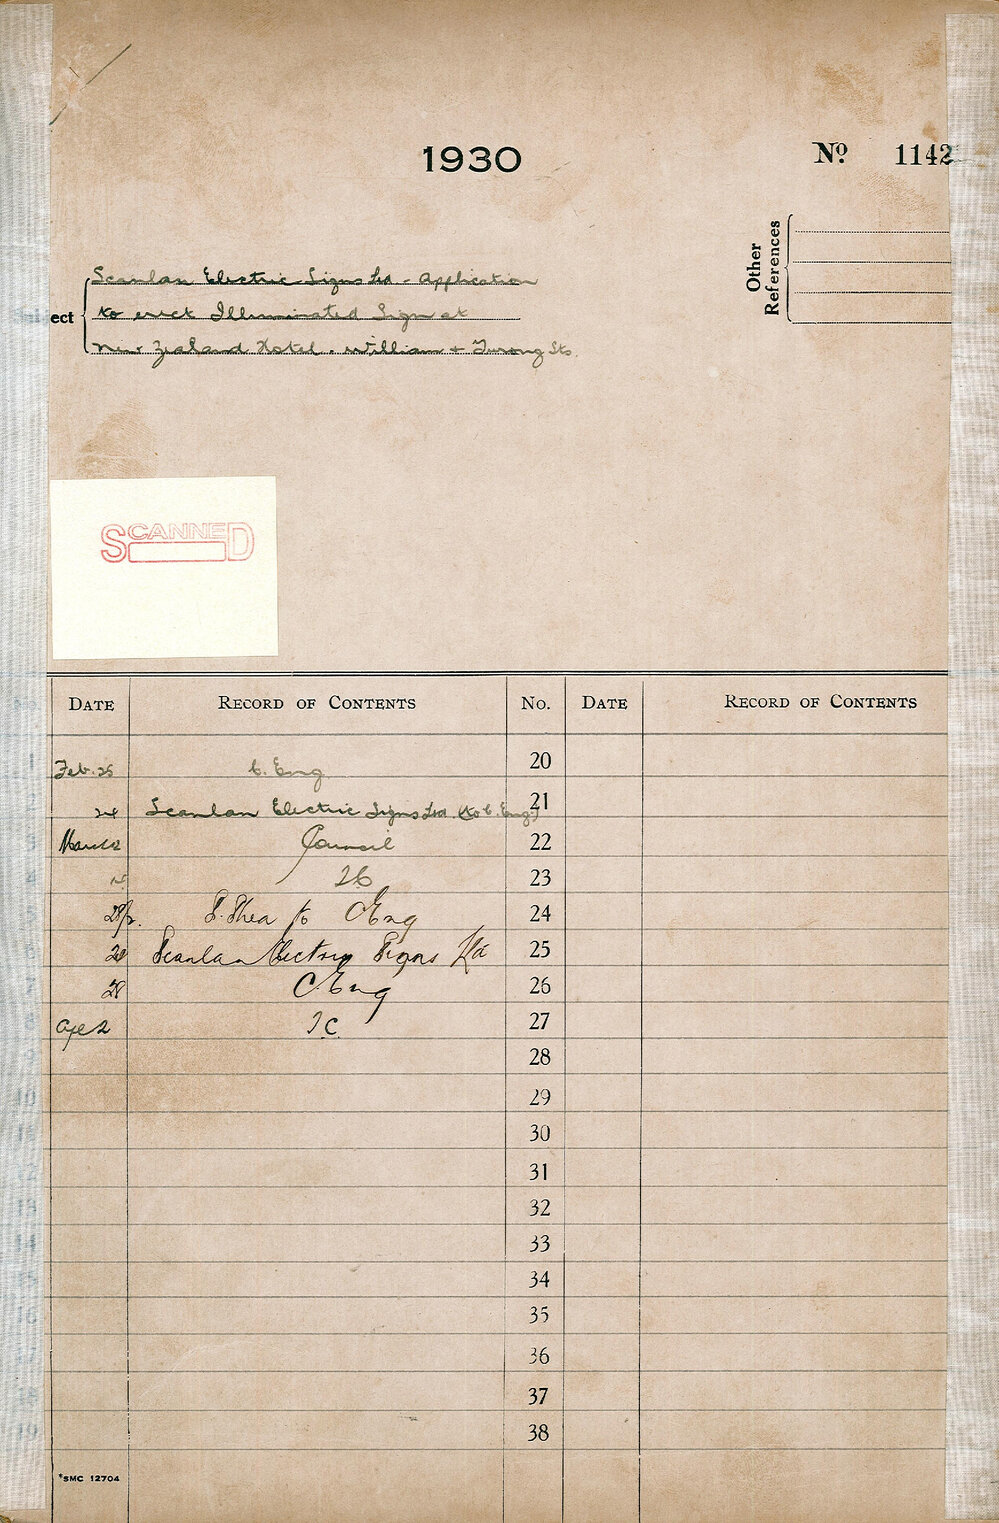 1930
No 1142
Other
References
ect
Scanlan Electric Signs Ltd - Application
to erect Illuminated Sign at
New Zealand Hotel. William & Furong Sts.
SCANNED
DATE RECORD OF CONTENTS No. DATE RECORD OF CONTENTS
Feb. 25 C. Eng 20
24 Scanlan Electric Signs Ltd. (to C. Eng) 21
March Council 22
23
S. Shea to C Eng 24
Scanlan Electric Signs Ltd 25
28 C. Eng 26
Ap 2 T.C. 27
28
29
30
31
32
33
34
35
36
37
38
SMC 12704